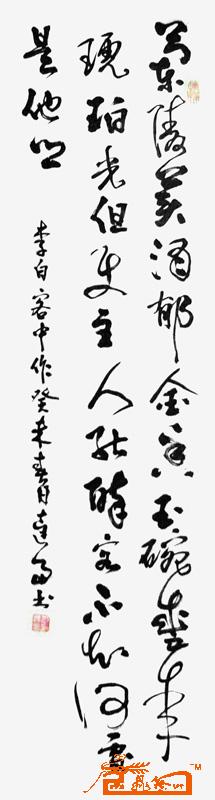 兰陵美酒郁金香玉碗盛来
琥珀光但使主人能醉客不知何处
是他乡
李白客中作癸未春月达富书
TM